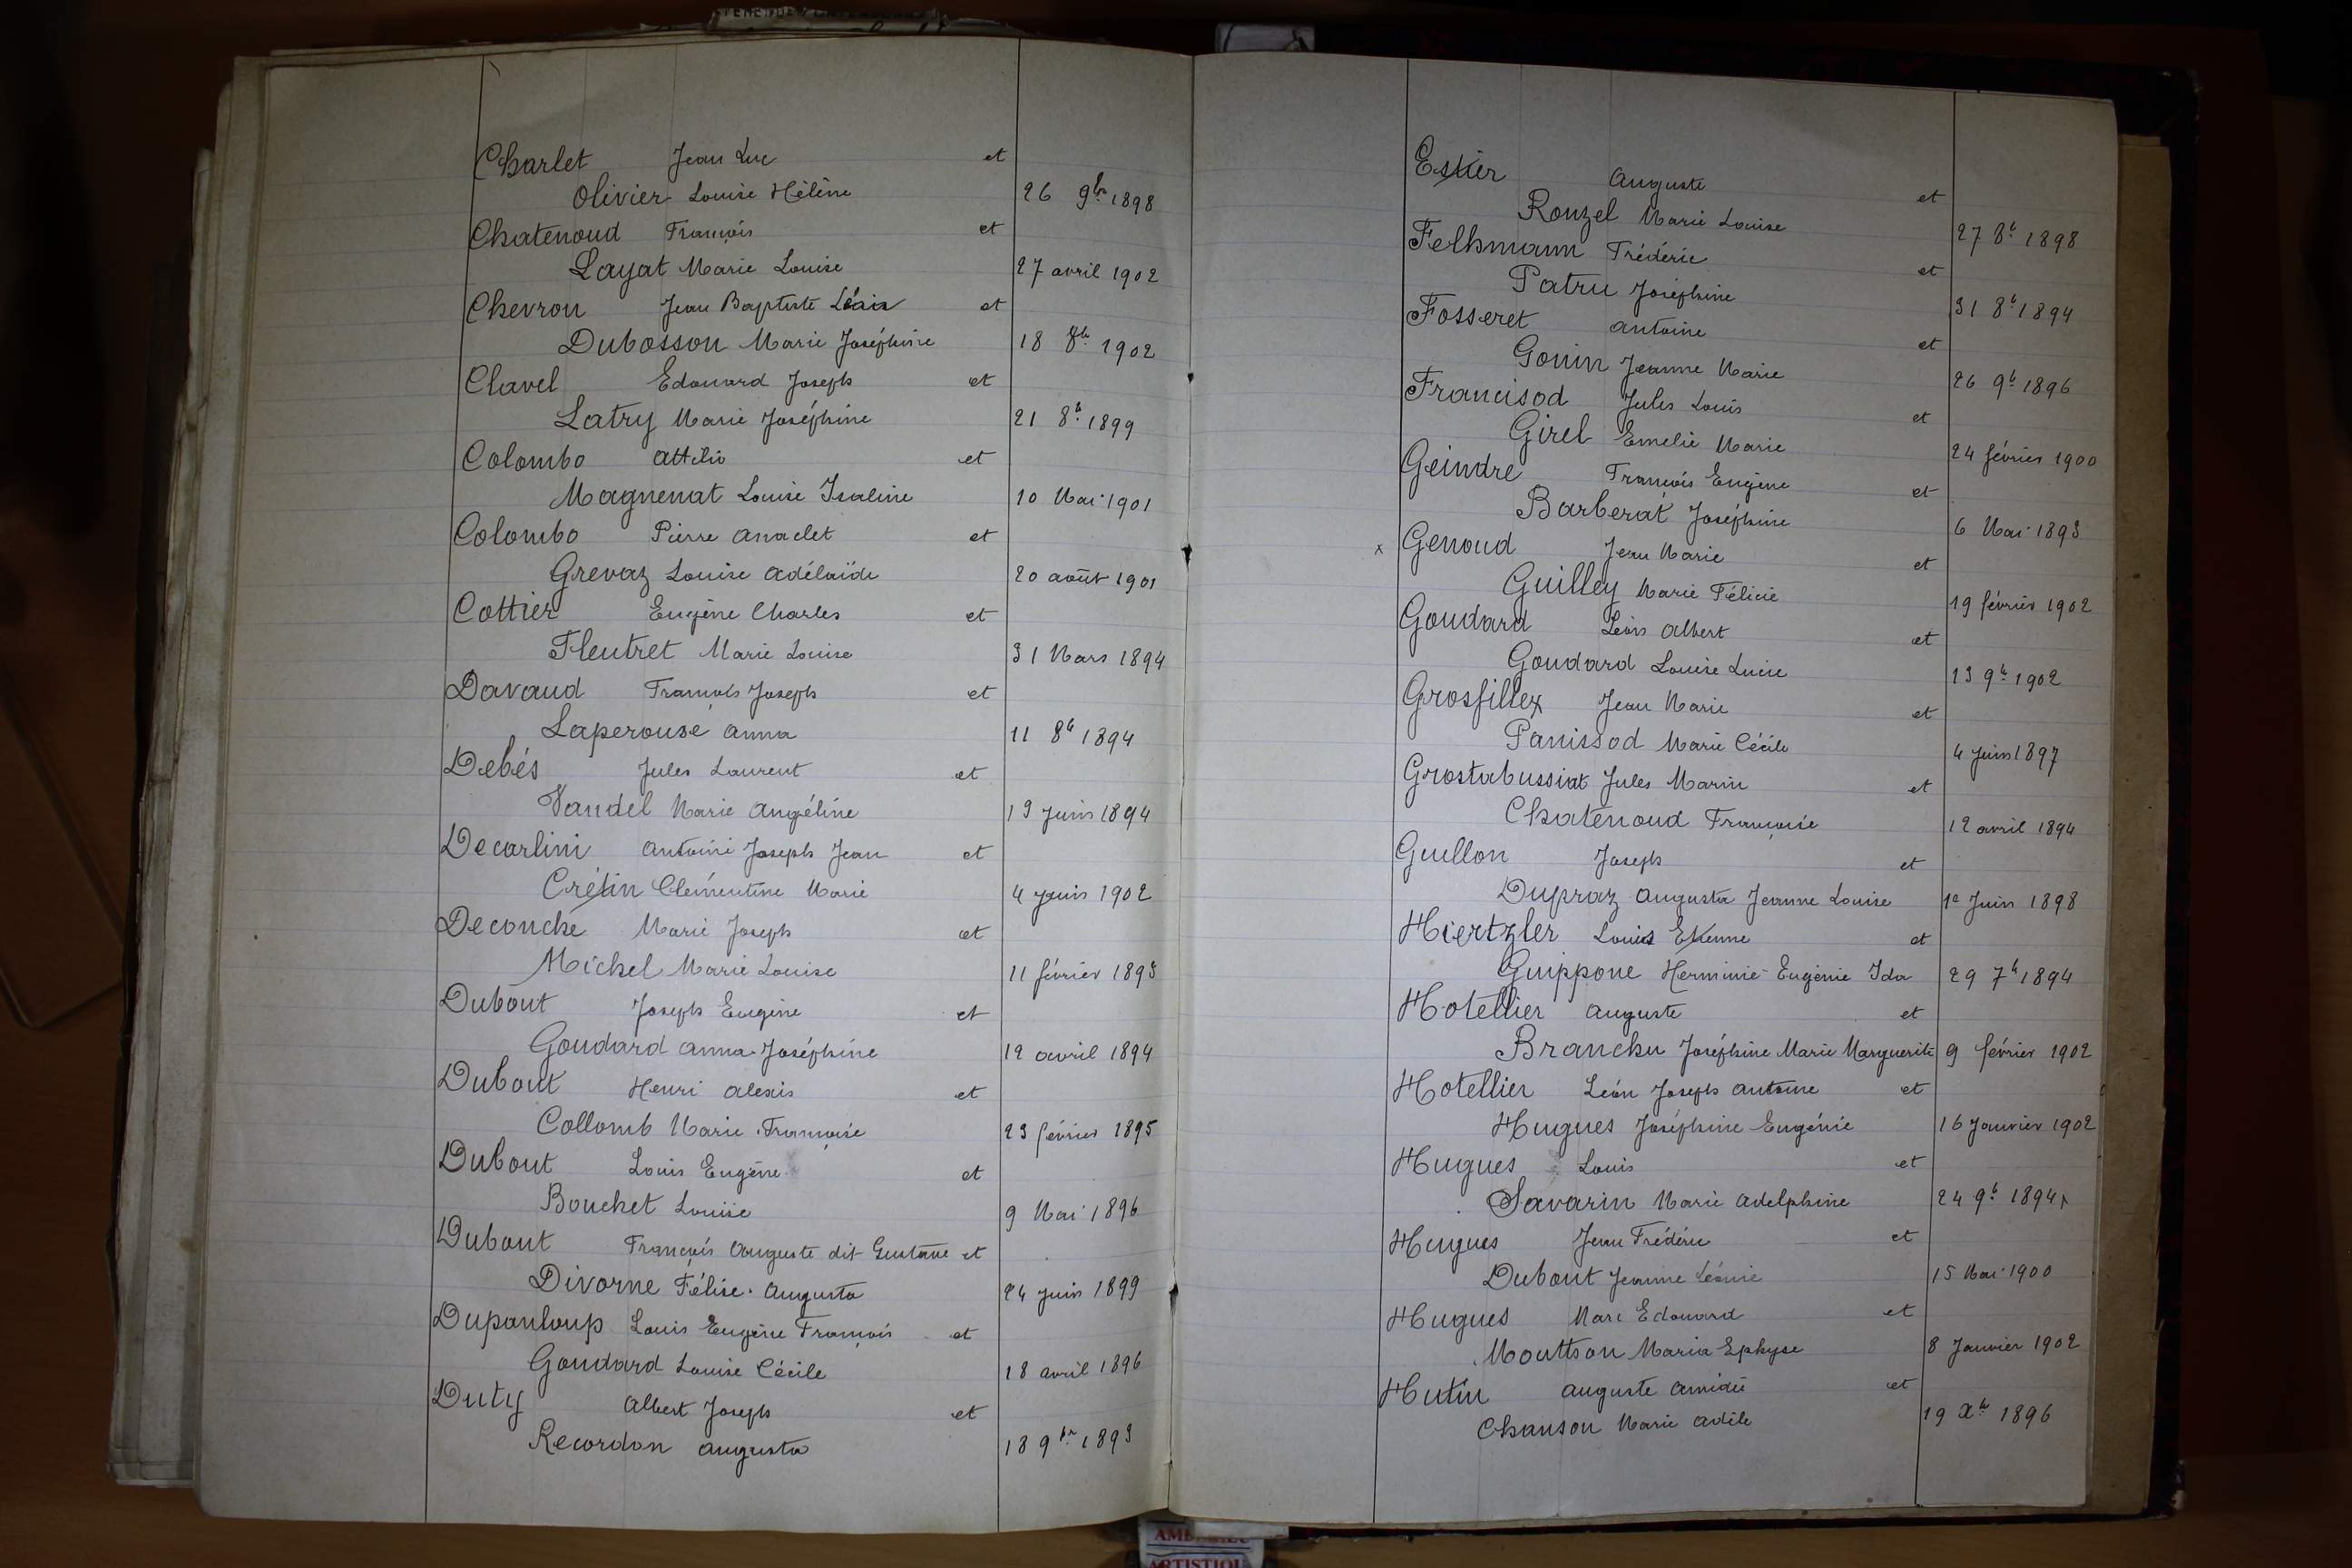 Charlet Jean Luc et
Olivier Louise Hélène 26 9bre 1898
Chatenoud François et
Layat Marie Louise 27 avril 1902
Chevron Jean Baptiste et
Dubosson Marie Joséphine 18 8bre 1902
Clavel Edouard Joseph et
Latry Marie Joséphine 21 8b 1899
Colombo Attilio et
Magnenat Louise Isaline 10 Mai 1901
Colombo Pierre Anaclet et
Grevaz Louise Adélaïde 20 août 1901
Cottier Eugène Charles et
Fleutret Marie Louise 31 Mars 1894
Davaud François Joseph et
Laperouse Anna 11 8b 1894
Debés Jules Laurent et
Vandel Marie Angéline 19 Juin 1894
Decarlini Antoine Joseph Jean et
Crétin Clémentine Marie 4 Juin 1902
Deconche Marie Joseph et
Michel Marie Louise 11 février 1893
Dubout Joseph Eugène et
Goudard Anna Joséphine 12 avril 1894
Dubout Henri Alexis et
Collomb Marie Françoise 23 février 1895
Dubout Louis Eugène et
Bouchet Louise 9 Mai 1896
Dubout François Auguste dit Gustave et
Divorne Félise Augusta 24 Juin 1899
Dupanloup Louis Eugène François et
Goudard Louise Cécile 18 avril 1896
Duty Albert Joseph et
Recordon Augusta 18 9br 1893
Estier Auguste et
Rouzel Marie Louise 27 8b 1898
Felhmann Frédéric et
Patru Joséphine 31 8b 1894
Fosseret Antoine et
Gonin Jeanne Marie 26 9b 1896
Francisod Jules Louis et
Girel Emelie Marie 24 février 1900
Geindre François Eugène et
Barberat Joséphine 6 Mai 1893
x Genoud Jean Marie et
Guilley Marie Félicie 19 février 1902
Goudard Léon Albert et
Goudard Louise Lucie 13 9b 1902
Grosfillex Jean Marie et
Panissod Marie Cécile 4 Juin 1897
Grostabussiat Jules Marin et
Chatenoud Françoise 12 avril 1894
Guillon Joseph et
Dupraz Augusta Jeanne Louise 1e Juin 1898
Hiertzler Louis Etienne et
Guippone Herminie Eugénie Ida 29 7b 1894
Hotellier Auguste et
Branchu Joséphine Marie Marguerite 9 février 1902
Hotellier Léon Joseph Antoine et
Hugues Joséphine Eugénie 16 Janvier 1902
Hugues Louis et
Savarin Marie Adelphine 24 9b 1894
Hugues Jean Frédéric et
Dubout Jeanne Léonie 15 Mai 1900
Hugues Marc Edouard et
Mouttson Maria Ephyse 8 Janvier 1902
Hutin Auguste Amidée et
Chanson Marie Adèle 19 Xbre 1896
ARTISTIQU